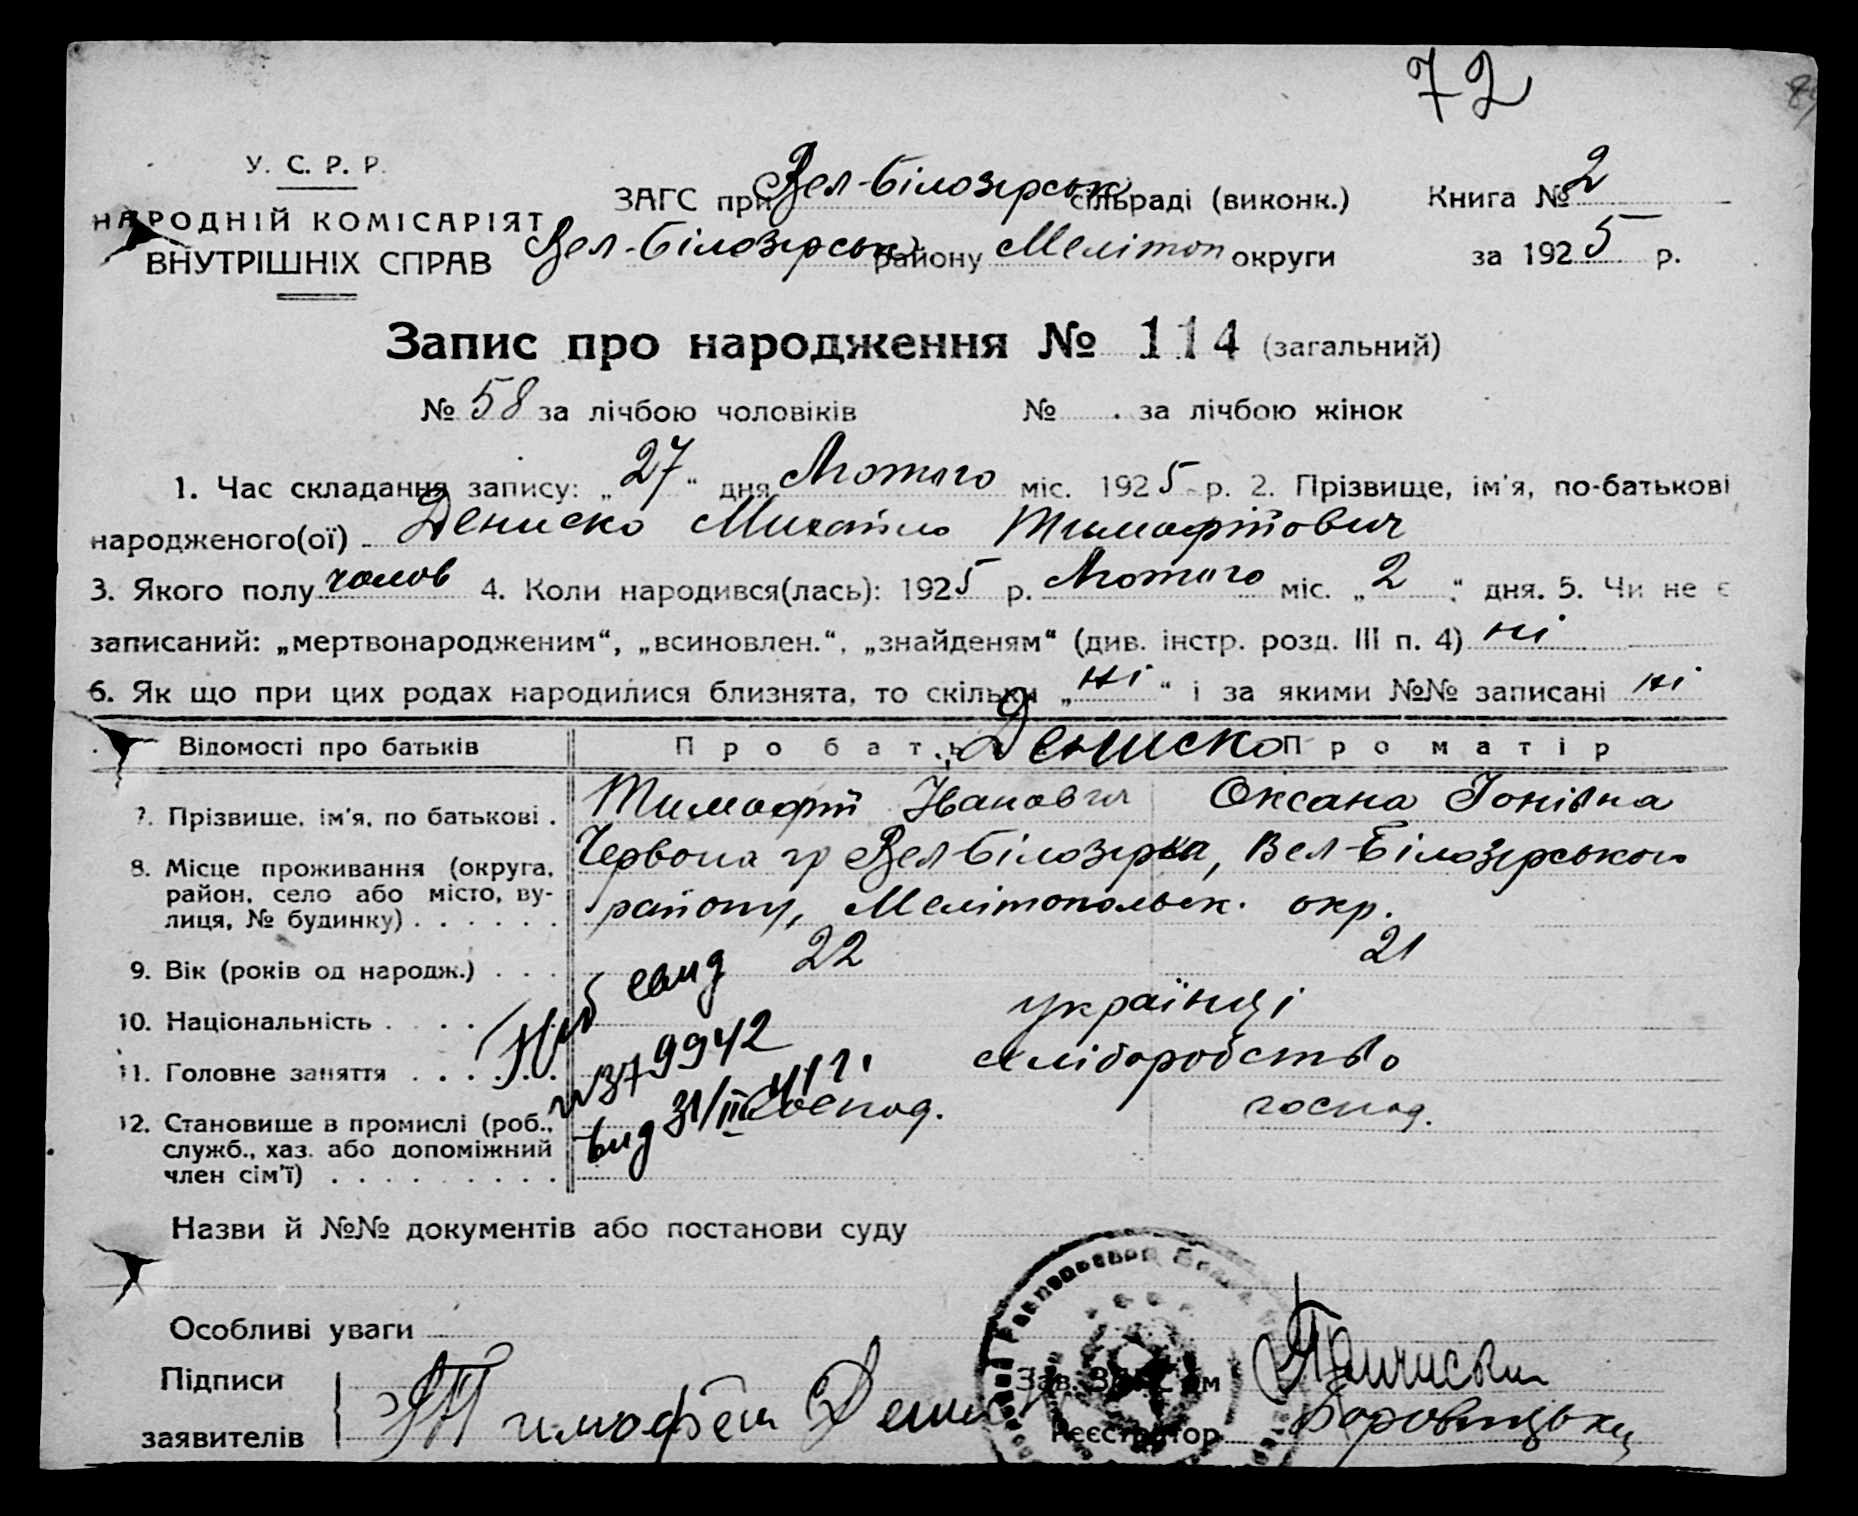 72
У. С. Р. Р.
НАРОДНІЙ КОМІСАРІЯТ
ВНУТРІШНІХ СПРАВ
ЗАГС при Вел-Білозерськ сільраді (виконк.) Книга № 2
Вел-Білозерськ району Мелітоп округи за 1925 р.
Запис про народження № 114 (загальний)
№ 58 за лічбою чоловіків № за лічбою жінок
1. Час складання запису: „27“ дня Лютого міс. 1925 р. 2. Прізвище, ім'я, по-батькові
народженого(ої) Дениско Михайло Тимофійович
3. Якого полу чолов 4. Коли народився(лась): 1925 р. Лютого міс. „2“ дня. 5. Чи не є
записаний: „мертвонародженим“, „всиновлен.“, „знайденям“ (див. інстр. розд. III п. 4) ні
6. Як що при цих родах народилися близнята, то скільки „ні“ і за якими №№ записані ні
Відомості про батьків Про бать Дениско Про матір
7. Прізвище, ім'я, по батькові . Тимофій Іванович Оксана Іонівна
8. Місце проживання (округа, район, село або місто, ву-
лиця, № будинку) . . . . . . Червона гр Вел-Білозерка, Вел-Білозерського
району, Мелітопольськ. окр.
9. Вік (років од народж.) . . . 22 21
10. Національність . . . . українці
11. Головне заняття . . . . . . хліборобство
12. Становище в промислі (роб.,
служб., хаз. або допоміжний
член сім'ї) . . . . . . . . . господ. господ.
свид
№379942
вид 31/III 41 г.
Назви й №№ документів або постанови суду
Особливі уваги
Підписи
заявителів Тимофей Дени
Зав. ЗАГС'ом
Реєстратор